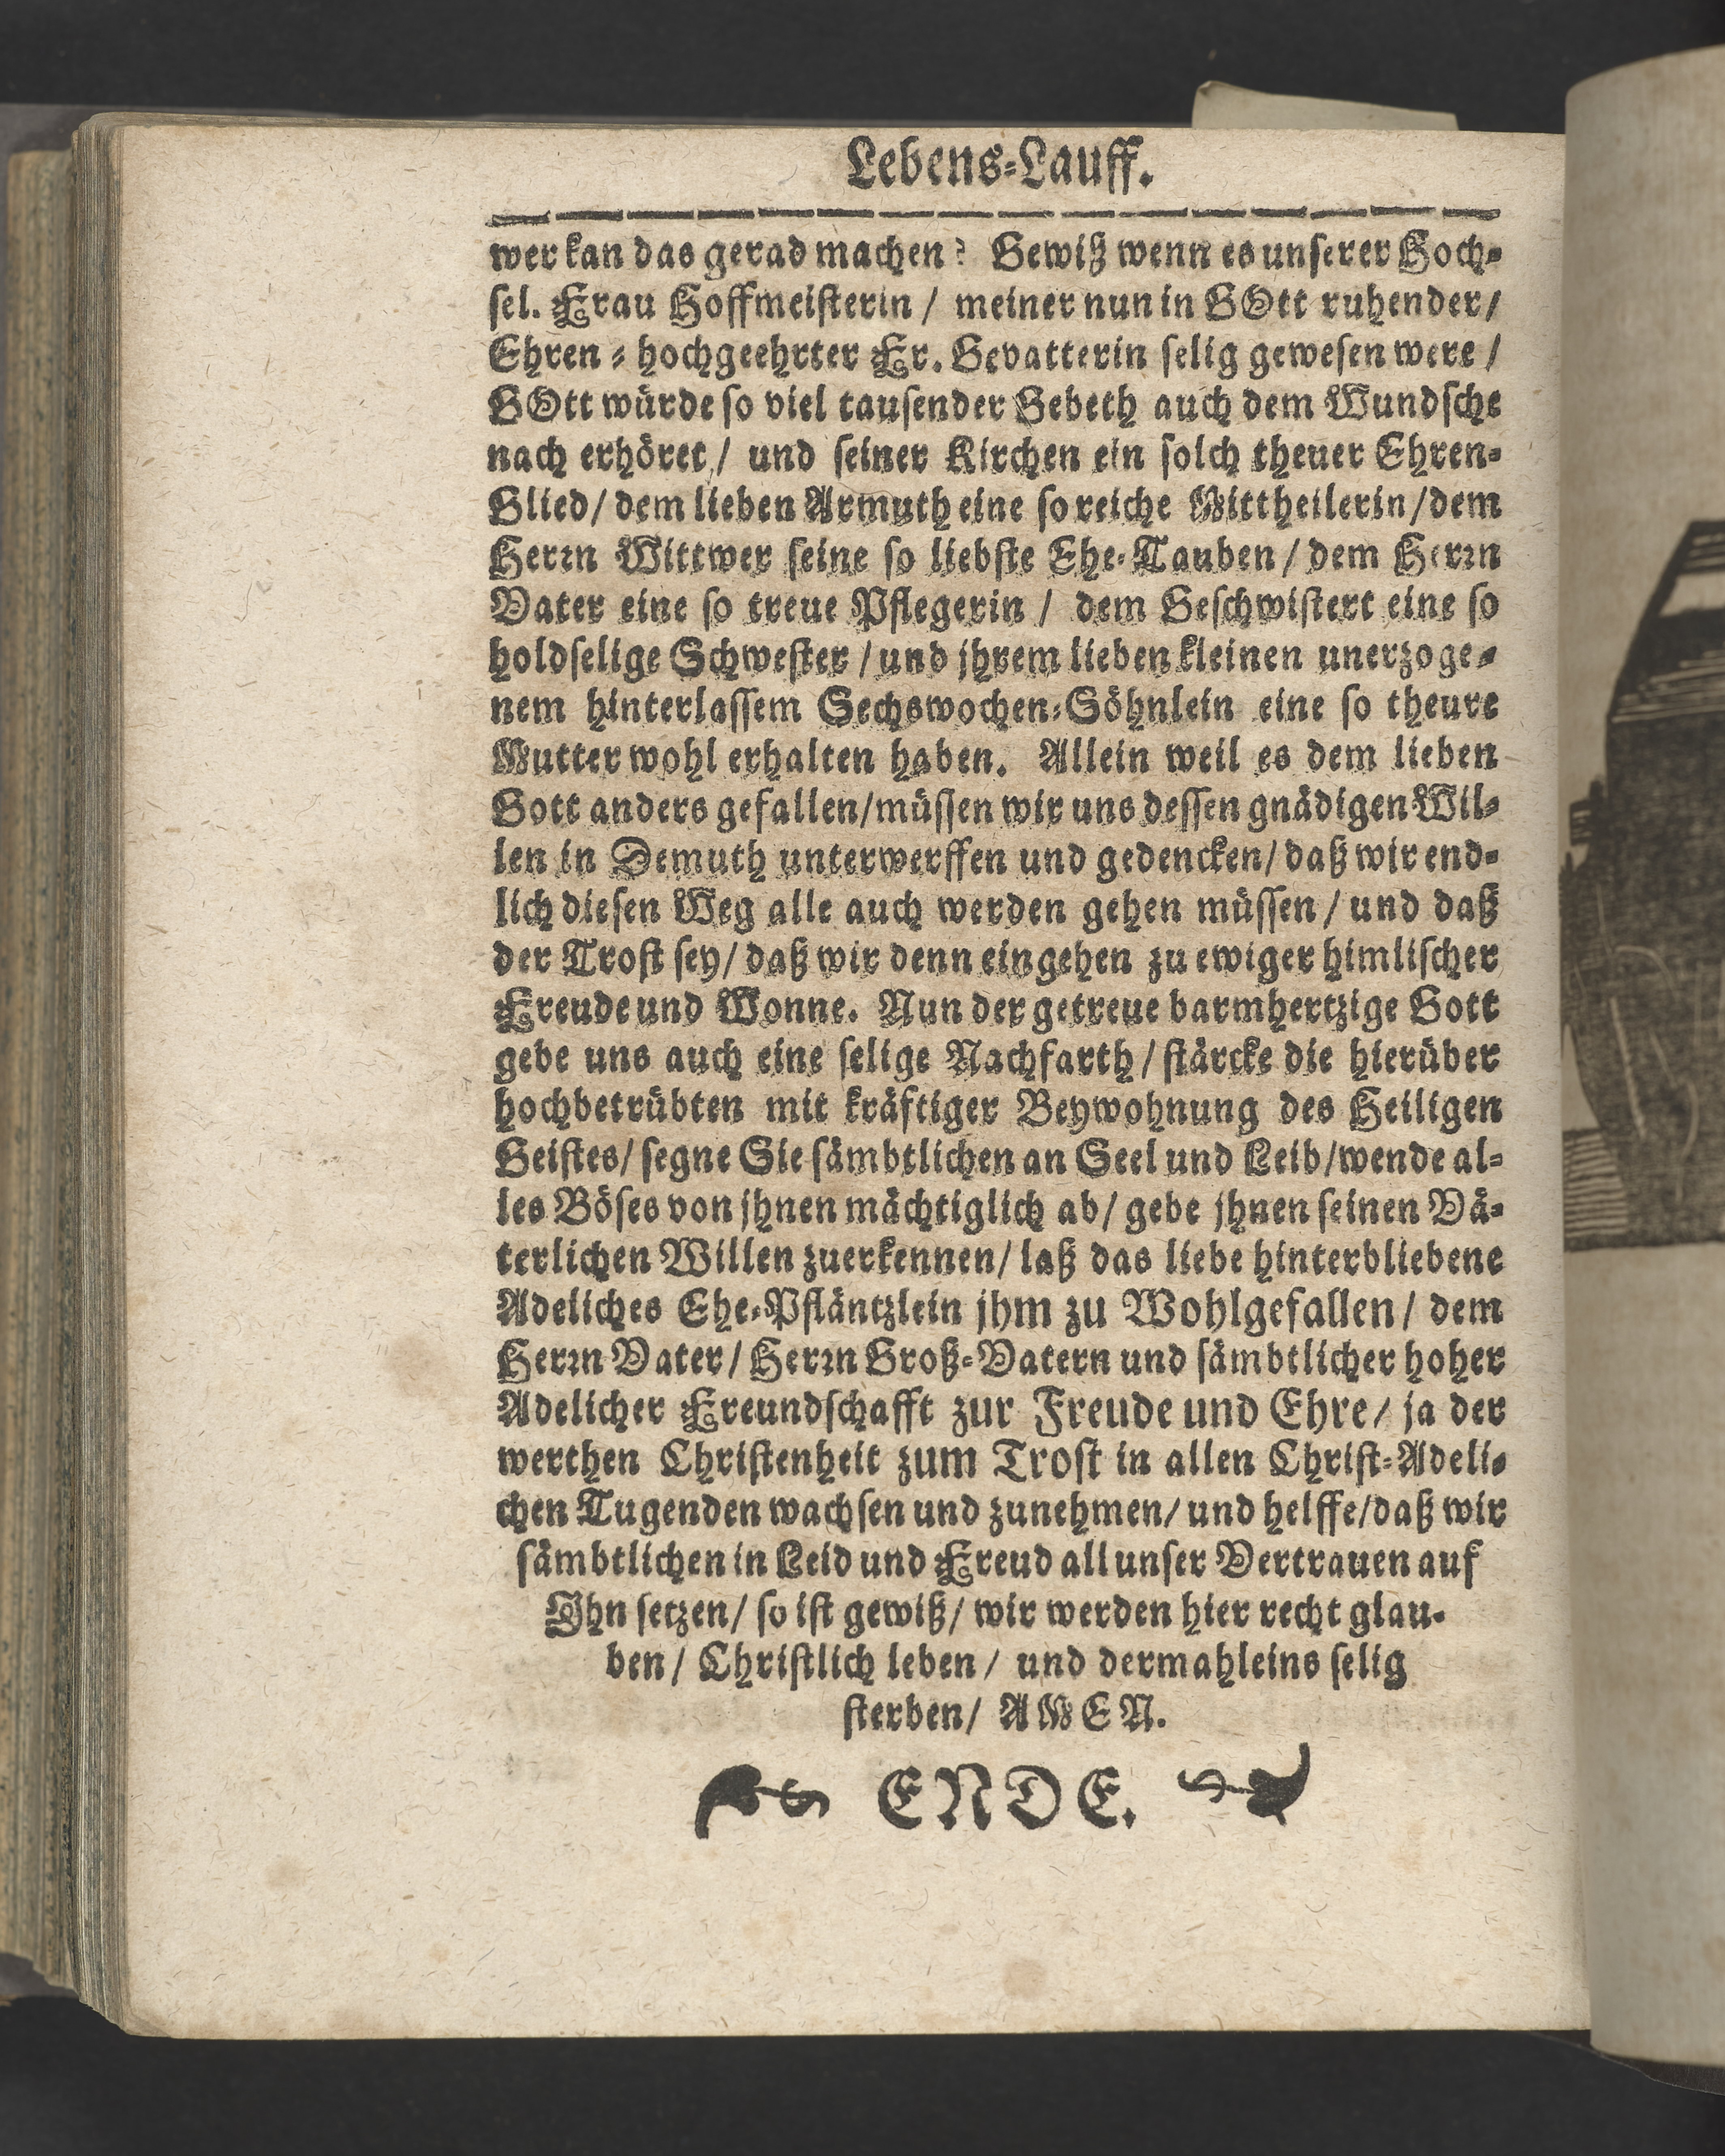 Lebens-Lauff.
wer kan das gerad machen? Gewiß wenn es unserer Hoch-
sel. Frau Hoffmeisterin / meiner nun in GOtt ruhender /
Ehren-hochgeehrter Fr. Gevatterin selig gewesen were /
GOtt würde so viel tausender Gebeth auch dem Wundsche
nach erhöret / und seiner Kirchen ein solch theuer Ehren-
Glied / dem lieben Armuth eine so reiche Mittheilerin / dem
Herrn Wittwer seine so liebste Ehe-Tauben / dem Herrn
Vater eine so treue Pflegerin / dem Geschwistert eine so
holdselige Schwester / und jhrem lieben kleinen unerzoge-
nem hinterlassem Sechswochen-Söhnlein eine so theure
Mutter wohl erhalten haben. Allein weil es dem lieben
Gott anders gefallen / müssen wir uns dessen gnädigen Wil-
len in Demuth unterwerffen und gedencken / daß wir end-
lich diesen Weg alle auch werden gehen müssen / und daß
der Trost sey / daß wir denn eingehen zu ewiger himlischer
Freude und Wonne. Nun der getreue barmhertzige Gott
gebe uns auch eine selige Nachfarth / stärcke die hierüber
hochbetrübten mit kräftiger Beywohnung des Heiligen
Geistes / segne Sie sämbtlichen an Seel und Leib / wende al-
les Böses von jhnen mächtiglich ab / gebe jhnen seinen Vä-
terlichen Willen zuerkennen / laß das liebe hinterbliebene
Adeliches Ehe-Pfläntzlein jhm zu Wohlgefallen / dem
Herrn Vater / Herrn Groß-Vatern und sämbtlicher hoher
Adelicher Freundschafft zur Freude und Ehre / ja der
werthen Christenheit zum Trost in allen Christ-Adeli-
chen Tugenden wachsen und zunehmen / und helffe / daß wir
sämbtlichen in Leid und Freud all unser Vertrauen auf
Ihn setzen / so ist gewiß / wir werden hier recht glau-
ben / Christlich leben / und dermahleins selig
sterben / AMEN.
ENDE.